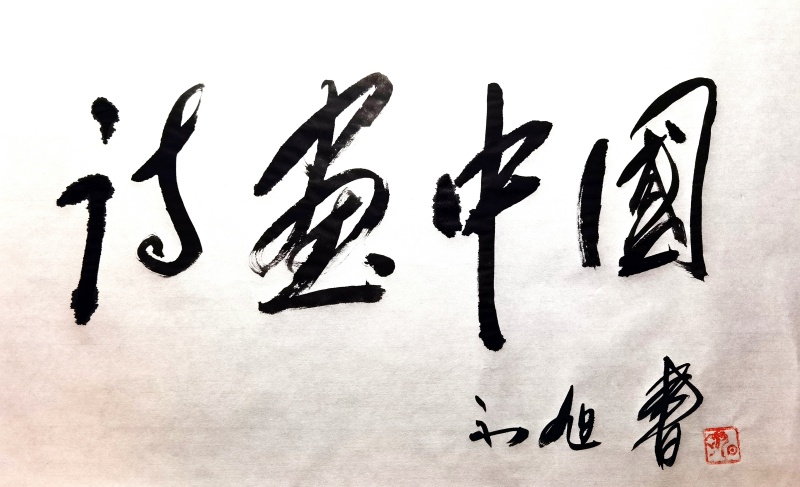 诗畫中國
永旭書